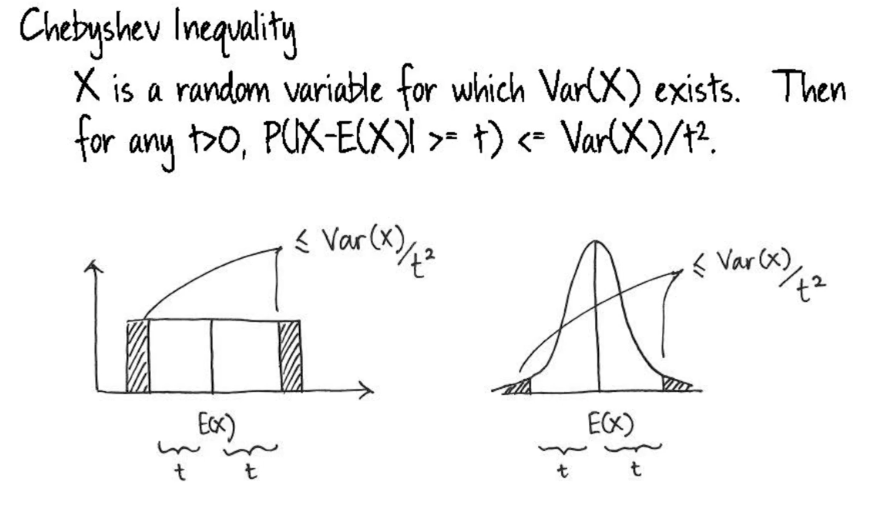 Chebyshev Inequality
X is a random variable for which Var(X) exists. Then
for any t>0, P(|X-E(X)| >= t) <= Var(X)/t².
≤ Var(X)/t²
≤ Var(X)/t²
E(X)
t t
E(X)
t t